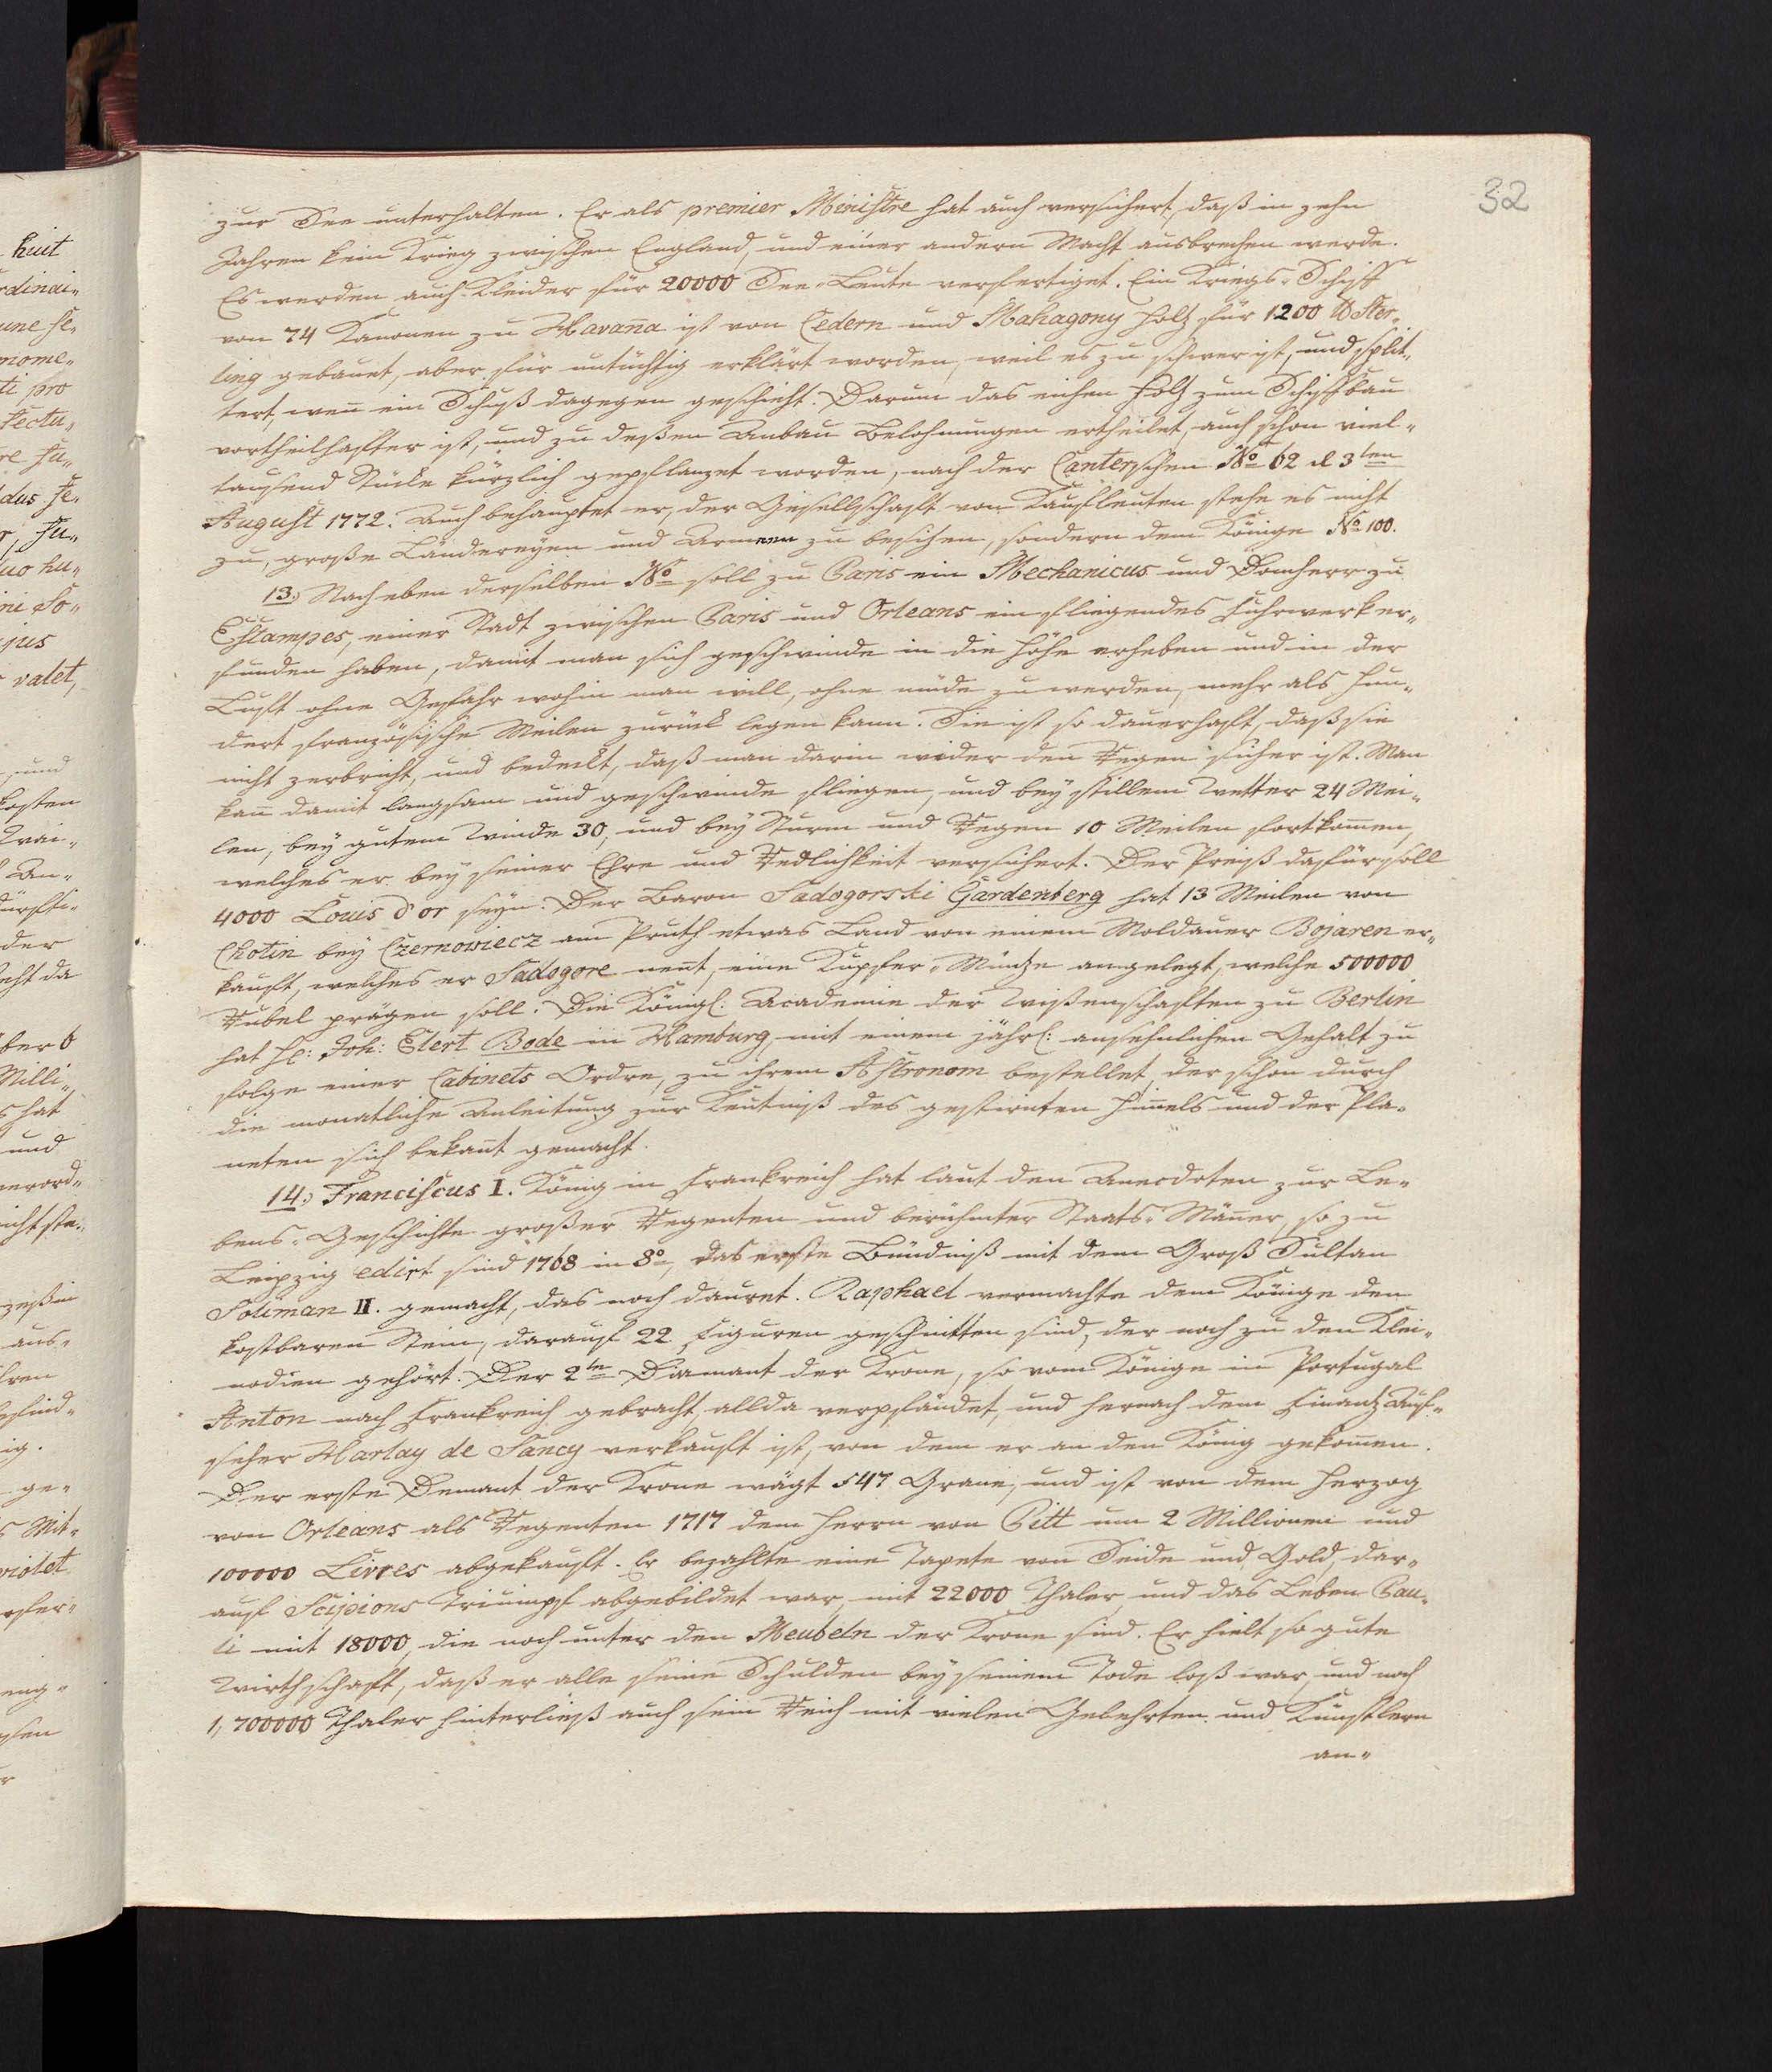 32
zur See unterhalten. Er als premier Ministre hat auch versichert, daß in zehn
Jahren kein Krieg zwischen England, und einer andern Macht ausbrechen werde.
Es werden auch Kleider für 20000 See-Leute verfertiget. Ein Kriegs-Schiff
von 74 Kanonen zu Havaña ist von Cedern und Mahagony Holz für 1200 ℔ Ster-
ling gebauet, aber für untüchtig erklärt worden, weil es zu schwer ist, und split-
tert, weñ ein Schuß dagegen geschieht. Darum das eichen Holz zum Schiffbau
vortheilhafter ist, und zu deßen Anbau Belohnungen ertheilet, auch schon viel-
tausend Stücke kürzlich gepflanzet worden, nach der Canterschen No 62 d 3ten
August 1772. Auch behauptet er, der Gesellschaft von Kaufleuten stehe es nicht
zu, große Ländereyen und Armeen zu besizen, sondern dem Könige No 100.
13.) Nach eben derselben No soll zu Paris ein Mechanicus und Domherr zu
Estampes, einer Stadt zwischen Paris und Orleans ein fliegendes Fuhrwerk er-
funden haben, damit man sich geschwinde in die Höhe erheben und in der
Luft ohne Gefahr wohin man will, ohne müde zu werden, mehr als hun-
dert französische Meilen zurück legen kann. Sie ist so dauerhaft, daß sie
nicht zerbricht, und bedeckt, daß man darin wider den Regen sicher ist. Man
kañ damit langsam und geschwinde fliegen, und bey stillem Wetter 24 Mei-
len, bey gutem Winde 30, und bey Sturm und Regen 10 Meilen fortkom̃en,
welches er bey seiner Ehre und Redlichkeit versichert. Der Preiß dafür soll
4000 Louis d'or seyn. Der Baron Sadogorski Gardenberg hat 13 Meilen von
Chotin bey Czernowiecz am Pruth etwas Land von einem Moldauer Bojaren er-
kauft, welches er Sadogore neñt, eine Kupfer-Müntze angelegt, welche 500000
Rubel prägen soll. Die Königl: Academie der Wißenschaften zu Berlin
hat H: Joh: Elert Bode in Hamburg, mit einem jährl: ansehnlichen Gehalt zu
folge einer Cabinets Ordre, zu ihrem Astronom bestellet, der schon durch
die monatliche Anleitung zur Kentniß des gestirnten Him̃els und der Pla-
neten sich bekañt gemacht.
14.) Franciscus I. König in Frankreich hat laut den Anecdoten zur Le-
bens-Geschichte großer Regenten und berühmter Staats-Mäñer, so zu
Leipzig edirt sind 1768 in 8o, das erste Bündniß mit dem Groß Sultan
Soliman II. gemacht, das noch dauret. Raphael vermachte dem Könige den
kostbaren Stein, darauf 22 Figuren geschnitten sind, der noch zu den Klei-
nodien gehört. Der 2te Diamant der Krone, so vom Könige in Portugal
Anton nach Frankreich gebracht, allda verpfändet, und hernach dem Finantz Auf-
seher Harlay de Sancy verkauft ist, von dem er an den König gekom̃en.
Der erste Demant der Krone wägt 547 Grane, und ist von dem Herzog
von Orleans als Regenten 1717 dem Herrn von Pitt um 2 Millionen und
100000 Livres abgekauft. Er bezahlte eine Tapete von Seide und Gold, dar-
auf Scipions Triumpf abgebildet war, mit 22000 Thaler, und das Leben Pau-
li mit 18000, die noch unter den Meubeln der Krone sind. Er hielt so gute
Wirthschaft, daß er alle seine Schulden bey seinem Tode loß war, und noch
1,700000 Thaler hinterließ auch sein Reich mit vielen Gelehrten und Künstlern
an-